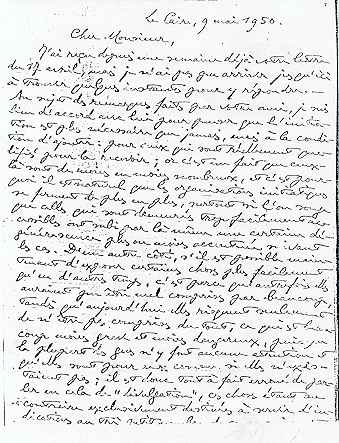 Le Caire, 9 mai 1950.
Cher Monsieur,
J'ai reçu depuis une semaine déjà votre lettre
du 17 avril, mais je n'ai pas pu arriver jusqu'ici
à trouver quelques instants pour y répondre. —
Au sujet des remarques faites par votre ami, je suis
bien d'accord avec lui pour penser que l'initiation
est plus nécessaire que jamais, mais à la condi-
tion d'ajouter: pour ceux qui sont réellement qua-
lifiés pour la recevoir; or c'est un fait que ceux-
là sont de moins en moins nombreux, et c'est pour-
quoi il est naturel que les organisations initiatiques
se ferment de plus en plus, surtout si l'on songe
que celles qui sont demeurées trop facilement ac-
cessibles ont subi par là même une certaine dé-
générescence plus ou moins accentuée suivant
les cas. D'un autre côté, s'il est possible main-
tenant d'exposer certaines choses plus facilement
qu'en d'autres temps, c'est parce qu'autrefois elles
auraient pu être mal comprises par beaucoup,
tandis qu'aujourd'hui elles risquent seulement
de n'être pas comprises du tout, ce qui est beau-
coup moins grave et moins dangereux, puisque
la plupart des gens n'y font aucune attention et
qu'elles sont pour eux comme si elles n'exis-
taient pas; il est donc tout à fait erroné de par-
ler en cela de "divulgation", ces choses étant au
contraire exclusivement destinées à servir d'in-
dications au très petit